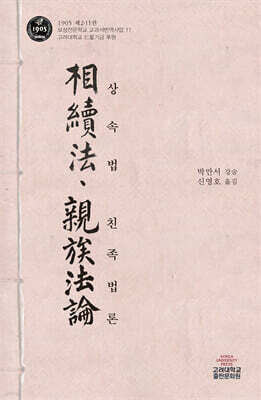 1905
1905 제2-11권
보성전문학교 교과서번역사업 11
고려대학교 仁星기금 후원
相續法、親族法論
상속법 친족법론
박만서 강술
신영호 옮김
KOREA
UNIVERSITY
PRESS
고려대학교
출판문화원